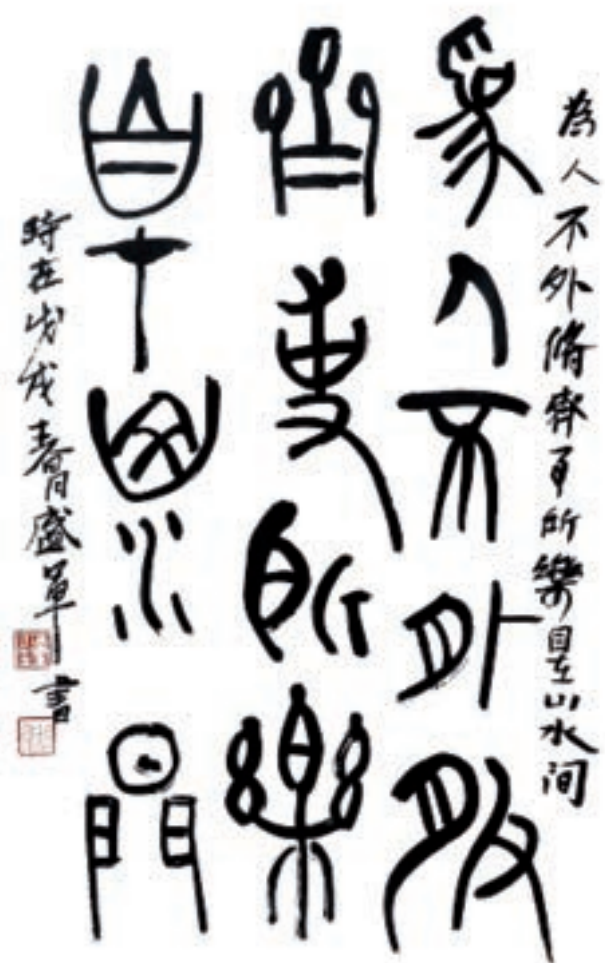 為人不外脩齊事所樂自在山水间
爲人不外脩
齊事所樂
自在山水間
時在戊戌春月盛軍書